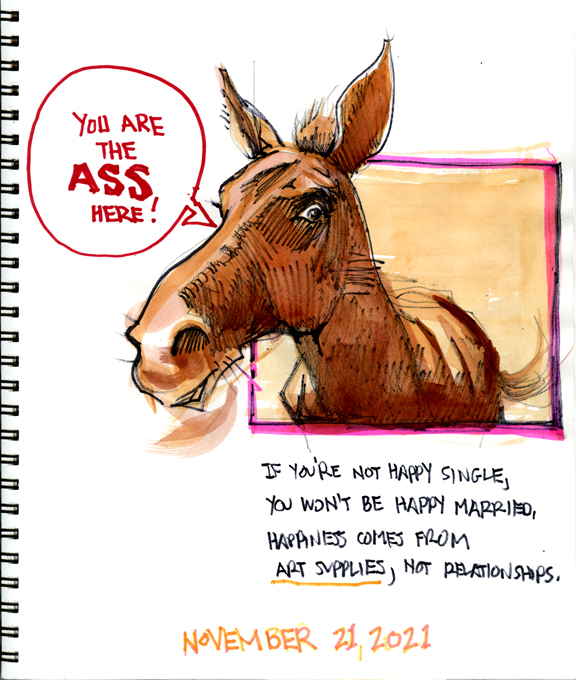 YOU ARE
THE
ASS
HERE!
IF YOU'RE NOT HAPPY SINGLE,
YOU WON'T BE HAPPY MARRIED.
HAPPINESS COMES FROM
ART SUPPLIES, NOT RELATIONSHIPS.
NOVEMBER 21, 2021